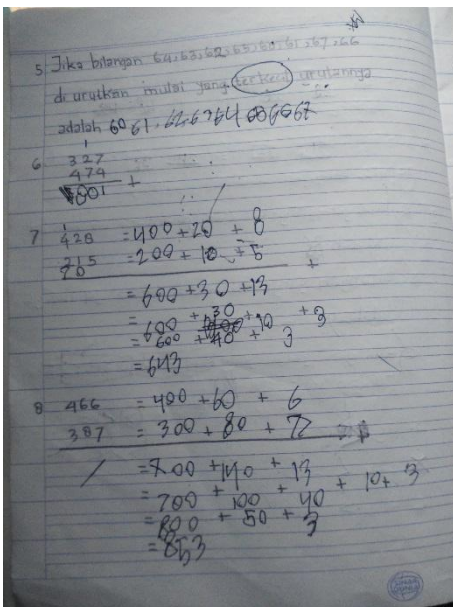 5 Jika bilangan 64,63,62,65,60,61,67,66
di urutkan mulai yang terkecil urutannya
adalah 60 61, 62 63 64 65 66 67
1
6. 327
474
801 +
1
7 428 = 400 + 20 + 8
215 = 200 + 10 + 5
+
= 600 + 30 + 13
= 600 + 30 + 10 + 3
= 600 + 40 + 3
= 643
8 466 = 400 + 60 + 6
387 = 300 + 80 + 7
= 700 + 140 + 13
= 700 + 100 + 40 + 10 + 3
= 800 + 50 + 3
= 853